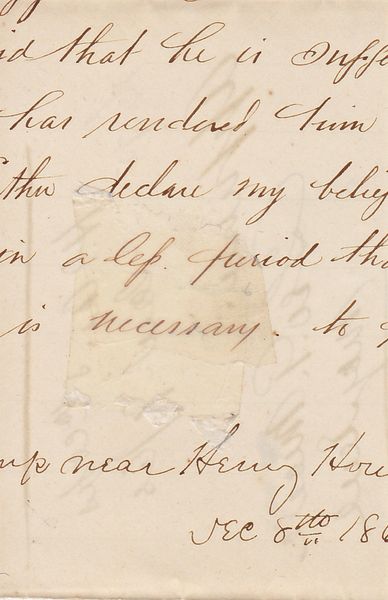 id that he is suffe
has rendered him
ther declare my belief
in a less period tha
is necessary. to
mp near Henry Hou
Dec 8th 186